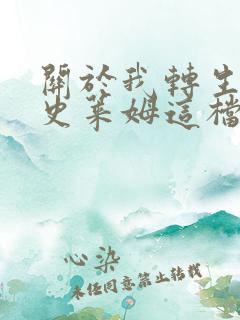 關於我轉生
史萊姆這檔
心染
未經同意禁止轉載